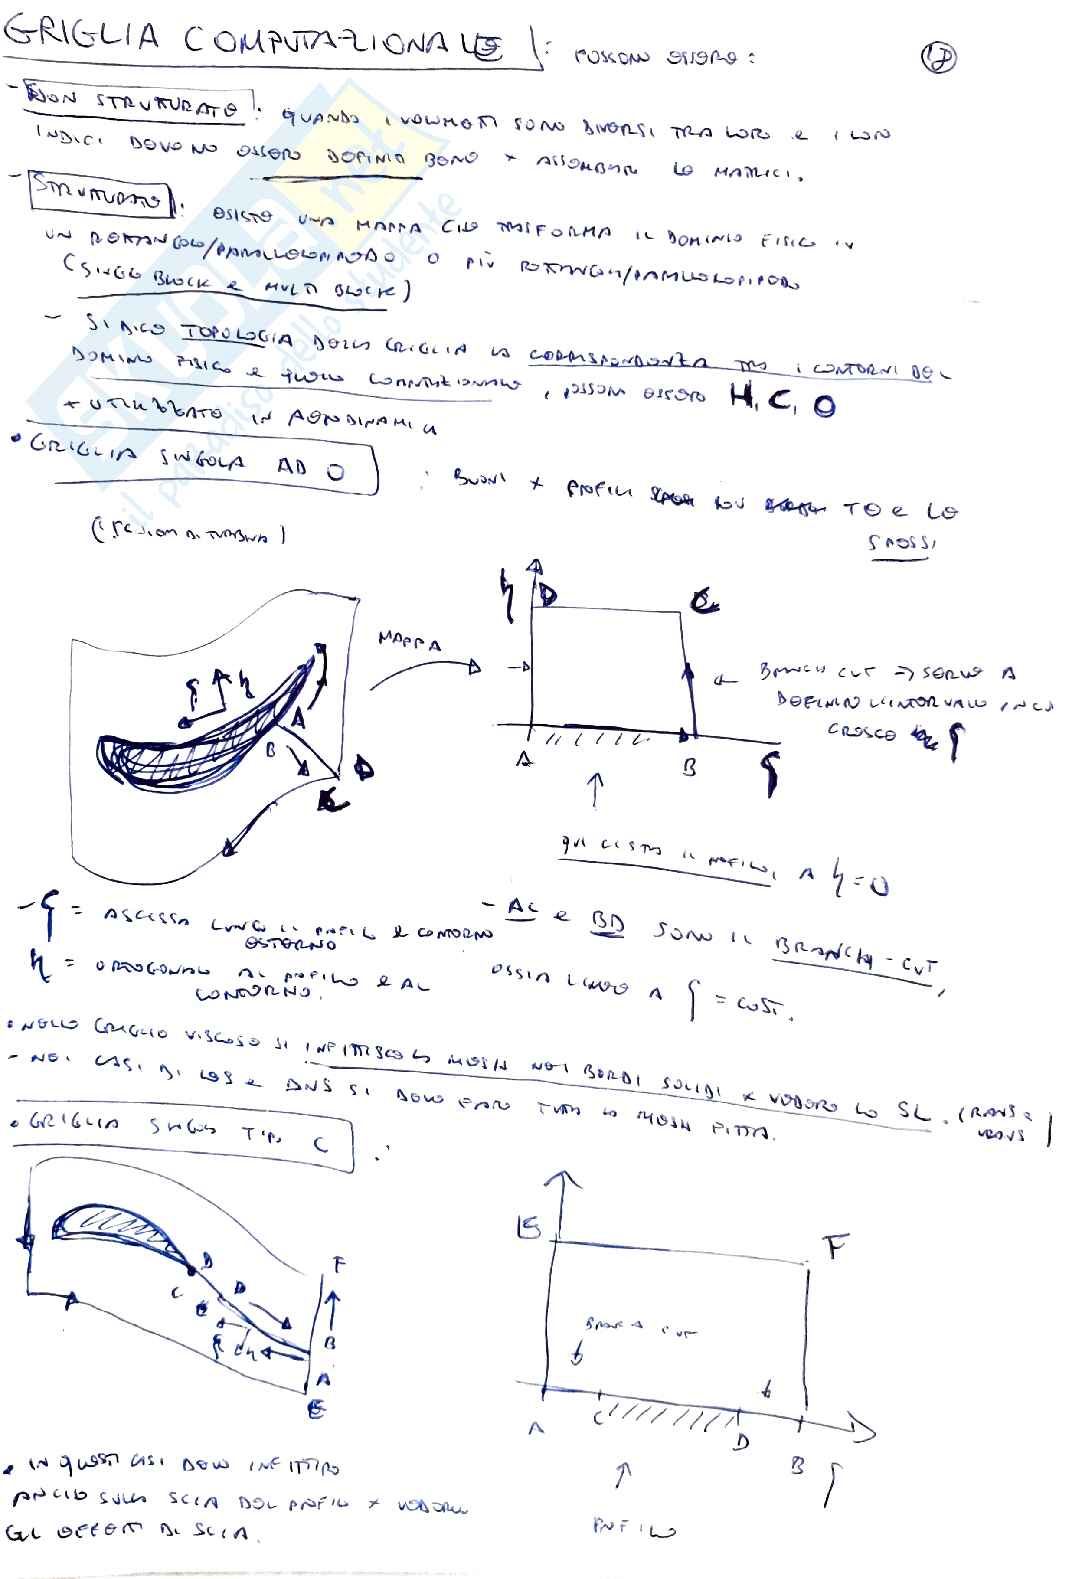 GRIGLIA COMPUTAZIONALE : POSSONO ESSERE :
- NON STRUTTURATE : QUANDO I VOLUMETTI SONO DIVERSI TRA LORO E I LORO
INDICI DEVONO ESSERE DEFINITI BENE × ASSEMBLARE LE MATRICI.
- STRUTTURATE : ESISTE UNA MAPPA CHE TRASFORMA IL DOMINIO FISICO IN
UN RETTANGOLO/PARALLELEPIPEDO O PIÙ RETTANGOLI/PARALLELEPIPEDO
(SINGLE BLOCK E MULTI BLOCK)
- SI DICE TOPOLOGIA DELLA GRIGLIA LA CORRISPONDENZA TRA I CONTORNI DEL
DOMINIO FISICO E QUELLO COMPUTAZIONALE, POSSONO ESSERE H, C, O
+ UTILIZZATE IN AERODINAMICA
• GRIGLIA SINGOLA AD O : BUONI × PROFILI CON TE E LE
SPESSI
(SEZIONI DI TURBINA)
MAPPA
η D C
ξ η
A
B
D
C
BRANCH CUT => SERVE A
DEFINIRE L'INTERVALLO IN CUI
CRESCE ξ
A B ξ
QUI CI STA IL PROFILO, A η = 0
- ξ = ASCISSA LUNGO IL PROFILO E CONTORNO
ESTERNO
η = ORTOGONALE AL PROFILO E AL
CONTORNO.
- AC E BD SONO IL BRANCH-CUT,
OSSIA LINEE A ξ = COST.
• NELLE GRIGLIE VISCOSE SI INFITTISCE LA MESH NEI BORDI SOLIDI × VEDERE LO SL. (RANS E
URANS)
- NEI CASI DI LES E DNS SI DEVE FARE TUTTA LA MESH FITTA.
• GRIGLIA SINGOLA TIPO C :
D
C
F
B
A
E
ξ η
E F
BRANCH CUT
A C D B ξ
PROFILO
• IN QUESTI CASI DEVO INFITTIRE
ANCHE SULLA SCIA DEL PROFILO × VEDERE
GLI EFFETTI DI SCIA.
SKUOLA.net
il paradiso dello studente